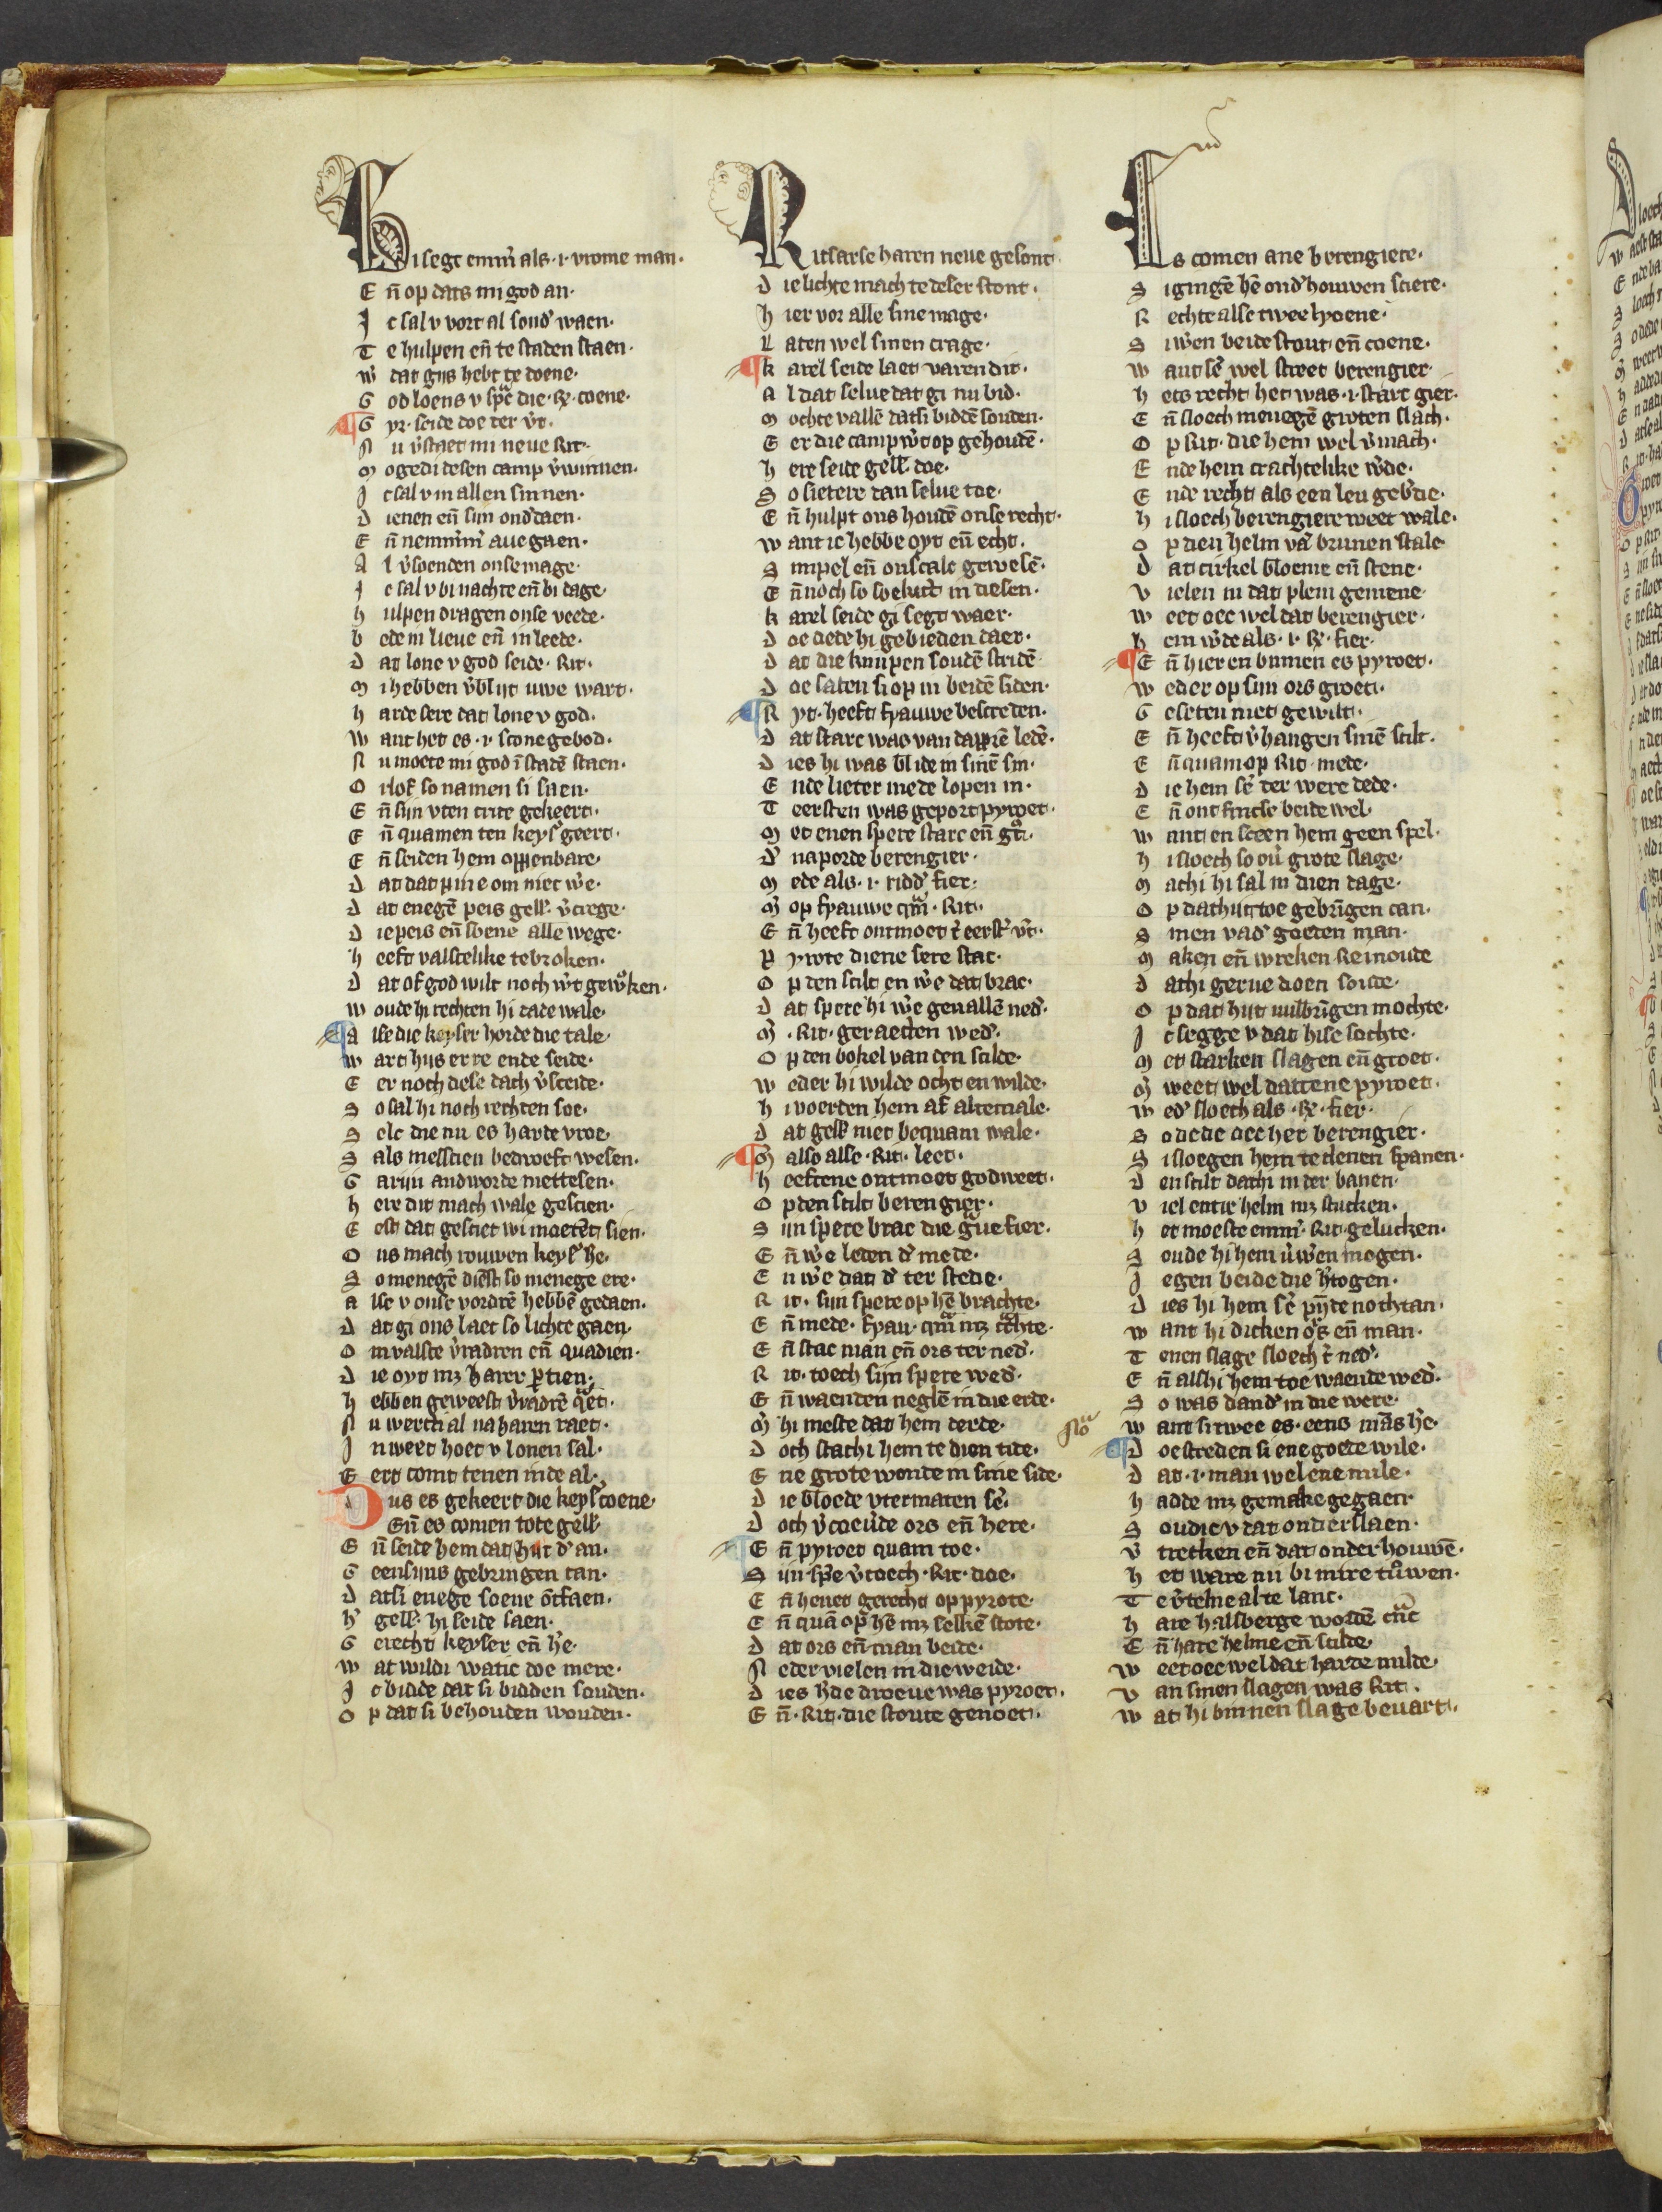 Gi segt emm̄ als .i. vrome man.
Eñ op dats mi god an.
Ic sal v vort al sond' waen.
Te hulpen eñ te staden staen.
W' dat gys hebt te doene.
God loens v sp'c die .R. coene.
Gyr. seide doe ter v't.
Nu v'staet mi neue Rit.
Mogedi desen camp v'winnen.
Ic sal v in allen sinnen.
Dienen eñ sijn ond'daen.
Eñ nemm'm' aue gaen.
Al v'soenden onse mage.
Ic sal v bi nachte eñ bi dage.
Hulpen dragen onse veede.
Bede in lieue eñ in leede.
Dat lone v god seide. Rit.
Mi hebben v'blijt uwe wart.
Harde sere dat lone v god.
Want het es .i. scone gebod.
Nu moete mi god ī stadē staen.
Orlof so namen si saen.
Eñ sijn vten crite gekeert.
Eñ quamen ten keys' geert.
Eñ seiden hem oppenbare.
Dat dat pine om niet w'e.
Dat enegē peis gell. v'crege.
Die peis eñ soene alle wege.
Heeft valscelike tebroken.
Dat of god wilt noch w't gew'ken.
Woude hi rechten hi dade wale.
Alse die keyser horde die tale.
Wart hijs erre ende seide.
Eer noch dese dach v'sceide.
So sal hi noch rechten soe.
Selc die nu es harde vroe.
Sals messcien bedroeft wesen.
Garijn andworde mettesen.
Here dit mach wale gescien.
Eest dat gesciet wi moetēt sien.
Ons mach rouwen keys' h'e.
So menegē dienst so menege ere.
Alse v onse vordrē hebbē gedaen.
Dat gi ons laet so lichte gaen.
Om valsce v'radren eñ quadien.
Die oyt mz harer ptien.
Hebben geweest v'radrē q'et.
Nu werct al na haren raet.
In weet hoet v lonen sal.
Eert comt tenen inde al.
Dus es gekeert die keys' coene.
Eñ es comen tote gell.
Eñ seide hem dat hijt d' an.
Geensijns gebringen can.
Datsi enege soene ōtfaen.
H' gell. hi seide saen.
Gerecht keyser eñ h'e.
Wat wildi watic doe mere.
Ic bidde dat si bidden souden.
Op dat si behouden wouden.
Ritsarse haren neue gesont.
Die lichte mach te deser stont.
Hier vor alle sine mage.
Laten wel sinen crage.
Karel seide laet varen dit.
Al dat selue dat gi nu bid.
Mochte vallē datsi biddē souden.
Eer die camp w't op gehoudē.
Here seide gell. doe.
So sietere dan selue toe.
Eñ hulpt ons houdē onse recht.
Want ic hebbe oyt eñ echt.
Simpel eñ onscalc gewesē.
Eñ noch so soekict in desen.
Karel seide gi segt waer.
Doe dede hi gebieden daer.
Dat die knijpen soudē stridē.
Doe saten si op in beidē siden.
Ryt. heeft fyauwe bescreden.
Dat starc was van dapprē ledē.
Dies hi was blide in sinē sin.
Ende lieter mede lopen in.
Teersten was geport pyroet.
Met enen spere starc eñ g't.
D' na porde berengier.
Mede als .i. ridd' fier.
M' op fyauwe qm .Rit.
Eñ heeft ontmoet t' eerst' v't.
Pyrote diene sere stac.
Op den scilt en w'e dat brac.
Dat spere hi w'e geuallē ned'.
M' .Rit. geraecten wed'.
Op den bokel van den scilde.
Weder hi wilde ocht en wilde.
Hi voerden hem af altemale.
Dat gell. niet bequam wale.
M' also alse .Rit. leet.
Heeftene ontmoet god weet.
Op den scilt berengier.
Sijn spere brac die g'ue fier.
Eñ w'e leden d' mede.
En w'e dat d' ter stede.
Rit. sijn spere op hē brachte.
Eñ mede. fyau. qm mz c'chte.
Eñ stac man eñ ors ter ned'.
Rit. toech sijn spere wed'.
Eñ waenden neglē in die erde.
M' hi meste dat hem derde.
Doch stachi hem te dien tide.
Ene grote wonde in sine side.
Die bloede vtermaten se'.
Doch v'coeu'de ors eñ here.
Eñ pyroet quam toe.
Sijn sp'e v'toech .Rit. doe.
Eñ heuet gerecht op pyrote.
Eñ quā op hē mz selkē stote.
Dat ors eñ man beide.
Neder vielen in die weide.
Dies h'de droeue was pyroet.
Eñ .Rit. die stoute genoet.
Is comen ane berengiere.
Si gingē hē ond'houwen sciere.
Rechte alse twee lyoene.
Si w'en beide stout eñ coene.
Want se' wel street berengier.
Hets recht het was .i. starc gier.
Eñ sloech menegē groten slach.
Op Rit. die hem wel v'mach.
Ende hem crachtelike w'de.
Ende recht als een leu geb'de.
Hi sloech berengiere weet wale.
Op dien helm vā brunen stale.
Dat cirkel bloeme eñ stene.
Vielen in dat plein gemene.
Weet oec wel dat berengier.
Hem w'de als .i. R. fier.
Eñ hier en binnen es pyroet.
Weder op sijn ors groet.
Geseten niet gewilt.
Eñ heeft v'hangen sinē scilt.
Eñ quam op Rit. mede.
Die hem se' ter were dede.
Eñ ontfincse beide wel.
Want en sceen hem geen spel.
Hi sloech so ou' grote slage.
Machi hi sal in dien dage.
Op dathijt toe gebrīgen can.
Sinen vad' goeden man.
Maken eñ wreken Reinoude
Dathi gerne doen soude.
Op dat hijt vulbrīgen mochte.
Ic segge v dat hise sochte.
Met starken slagen eñ groet.
M' weet wel dattene pyroet.
Wed' sloech als .R. fier.
So dede oec her berengier.
Si sloegen hem te dienen spanen.
Den scilt dathi in der banen.
Viel entie helm mz stucken.
Het moeste emm' Rit. gelucken.
Soude hi hem v'w'en mogen.
Jegen beide die h'togen.
Dies hi hem se' pijnde nochtan.
Want hi dicken o's eñ man.
Tenen slage sloech t' ned'.
Eñ alshi hem toe waende wed'.
So was dand' in die were.
Want si twee es. eens mās h'e.
Doe streden si ene goede wile.
Dat .i. man wel ene mile.
Hadde mz gemake gegaen.
Soudic v dat onderslaen.
V' trecken eñ dat onder houwē.
Het ware nu bi mire t'uwen.
Te v'telne al te lanc.
Hare halsberge wordē cr'nc
Eñ hare helme eñ scilde.
Weet oec wel dat harde milde.
Van sinen slagen was Rit.
Wat hi binnen slage beuart.